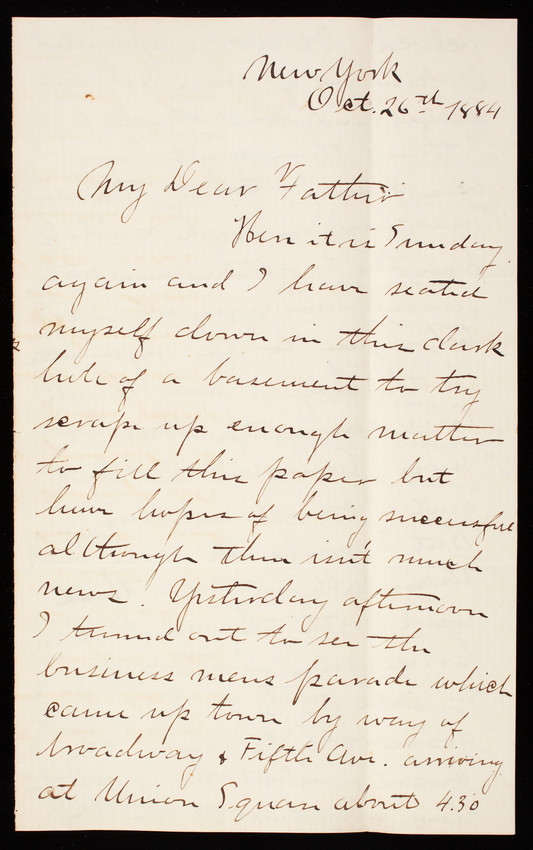 New York
Oct. 26th 1884
My Dear Father
Here it is Sunday
again and I have seated
myself down in this dark
hole of a basement to try
scrape up enough matter
to fill this paper but
have hopes of being successful
although there isn't much
news. Yesterday afternoon
I turned out to see the
business mens parade which
came up town by way of
broadway & Fifth Ave. arriving
at Union Square about 4.30